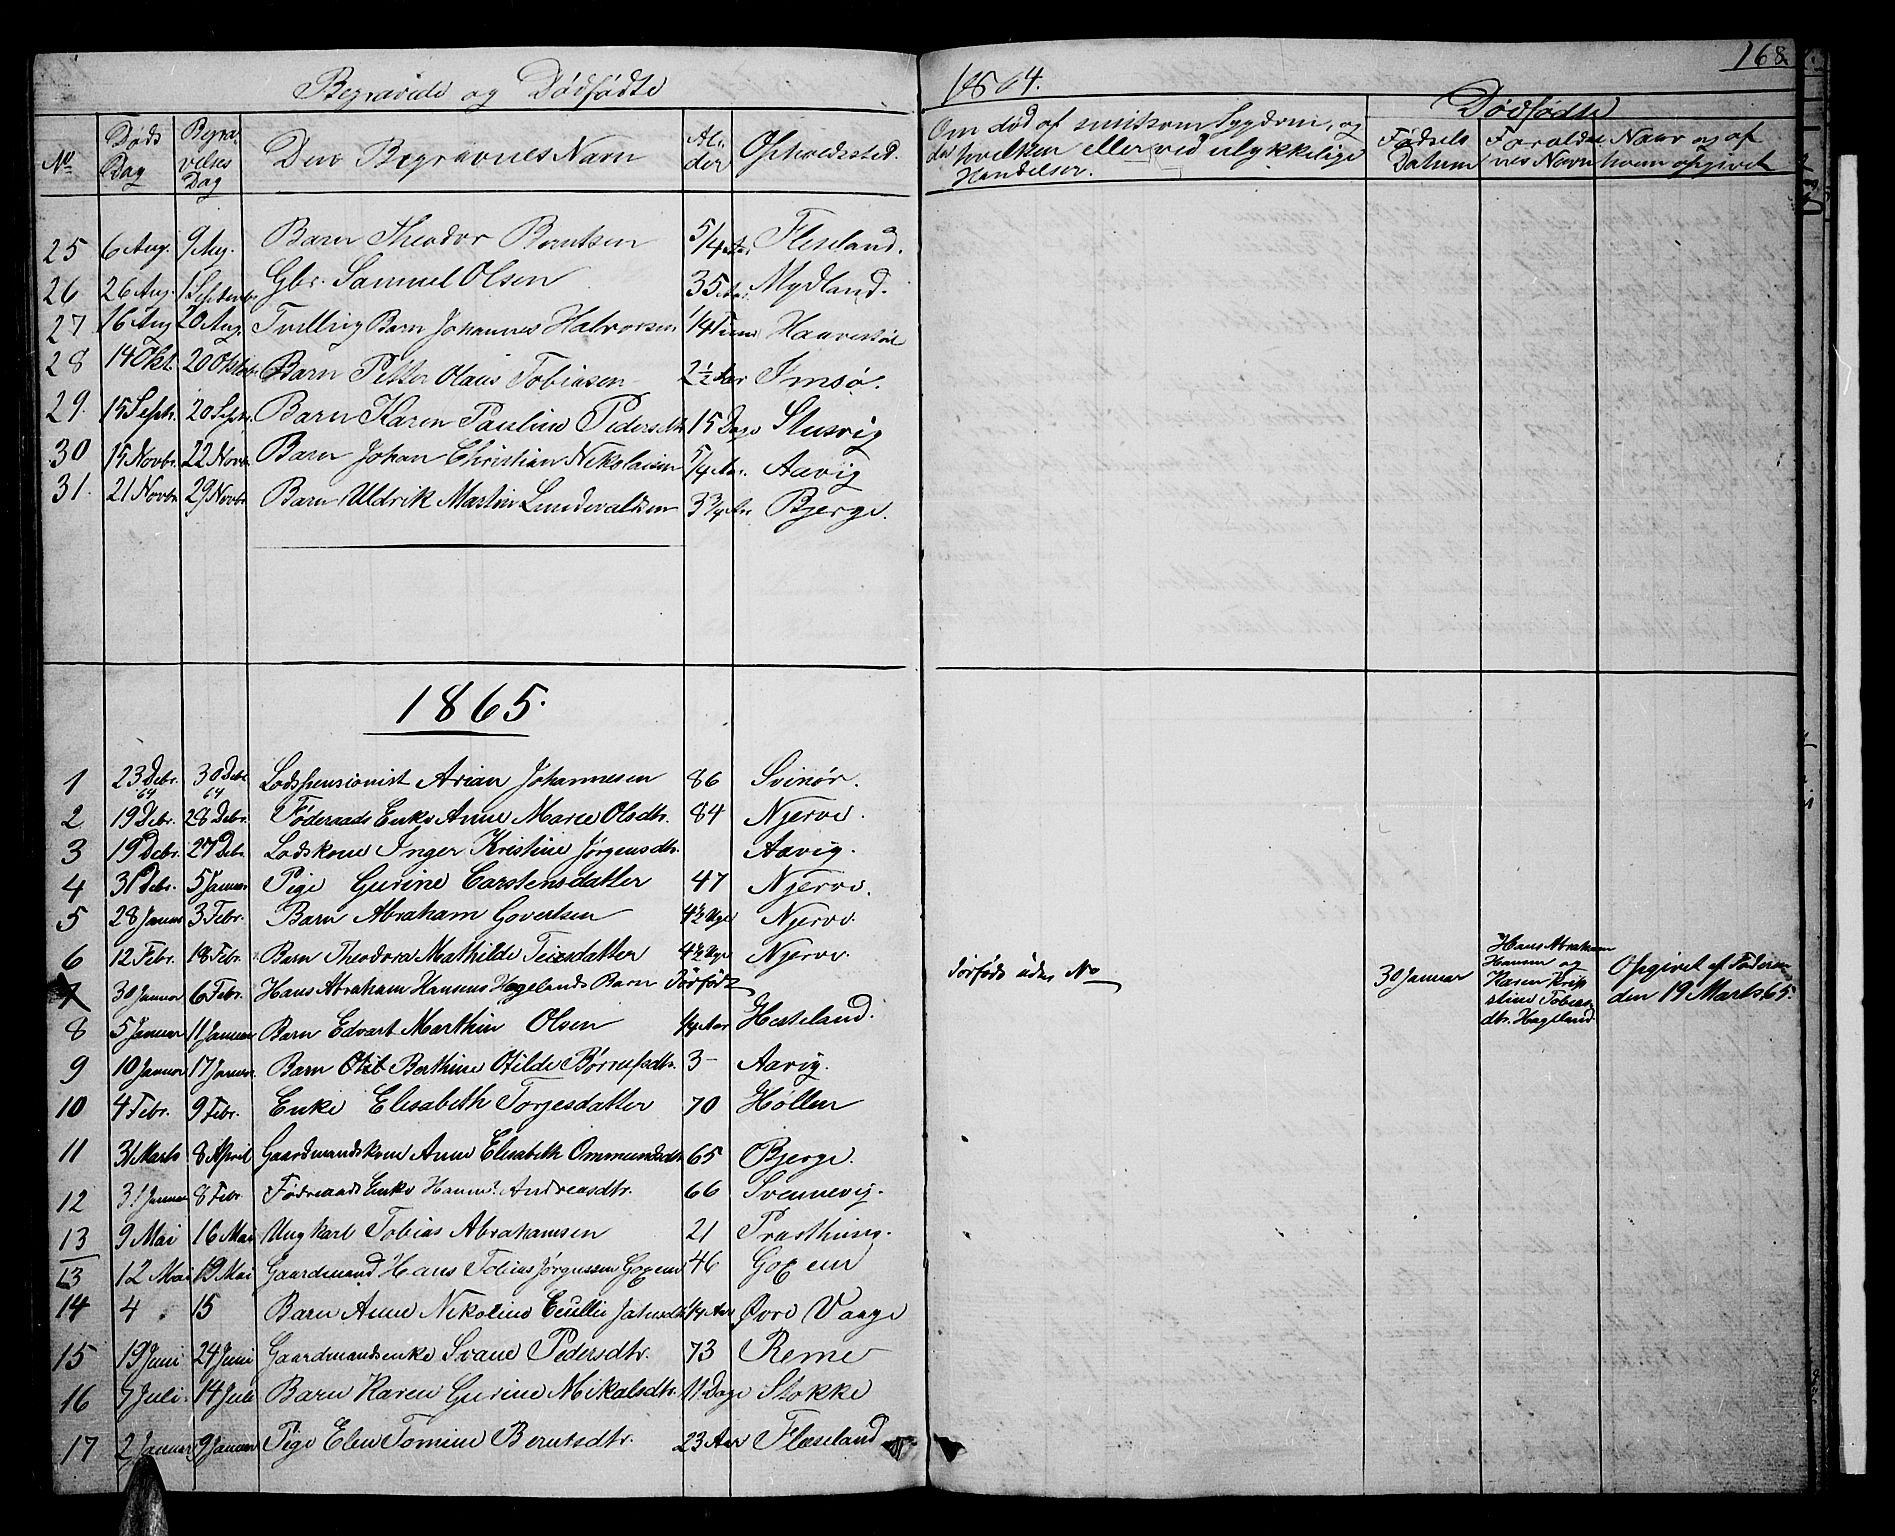 168
Begravede og Dødfødte
1864.
No
Døds Dag
Begravelses Dag
Den Begravnes Navn
Alder
Opholdssted.
Om død af smitsom Sygdom, og
da hvilken eller ved ulykkelige
Hændelser.
Dødfødte
Fødsels Datum
Forældrenes Navn
Naar og af hvem opgivet
25 6 Aug. 9 Aug. Barn Theodor Berntsen 5/4 Aar Fleseland.
26 26 Aug. 1 Septembr. Gbr. Samuel Olsen 35 Aar Mydland.
27 16 Aug 20 Aug Tvilling Barn Johannes Halvorsen 1/4 Time
28 14 Okt. 20 Oktobr. Barn Petter Olaus Tobiasen 2 1/2 Aar Imsø.
29. 15 Septr. 20 Septr. Barn Karen Pauline Pedersdtr 15 Dage
30 15 Novbr. 22 Novbr Barn Johan Christian Nikolaisen 5/4 Aar. Aavig
31. 21 Novbr 29 Novbr Barn Uldrik Martin Lundevaldsen 3 3/4 Aar Bjerge.
1865.
1 23 Debr. 64 30 Debr 64 Lodspensionist Arian Johannesen 86 Svinør.
2 19 Debr. 28 Debr. Føderaads Enke Anne Marie Olsdtr. 84 Njerve.
3 19 Debr. 27 Debr. Lodskone Inger Kristine Jørgensdtr. Aavig.
4 31 Debr. 5 Januar Pige Gurine Carstensdatter 47 Njerve.
5 28 Januar 3 Febr. Barn Abraham Govertsen 4 1/2 Uge Njerve.
6 12 Febr. 18 Febr. Barn Theodora Mathilde Teisdatter 4 1/2 Uge Njerve.
7 30 Januar 6 Febr. Hans Abraham Hansens Hagelands Barn Dødfødt
Dødføds uden No
30 Januar
Hans Abraham
Hansen og
Karen Kristine Tobiasdtr. Hageland.
Opgivet af Faderen
den 19 Marts 65.
8 5 Januar 11 Januar Barn Edvart Marthin Olsen 1/4 Aar Hesteland.
9 10 Januar 17 Januar. Barn Berthine Otilde 3 - Aavig.
10 4 Febr. 9 Febr. Enke Elisabeth Torjesdatter 70 Høllen
11 31 Marts 8 April Gaardmandskone Anne Elisabeth Ommundsdtr 65 Bjerge.
12 31 Januar 8 Febr Føderaads Enke Andreasdtr. 66 Svennevig.
13 9 Mai 16 Mai Ungkarl Tobias Abrahamsen 21
13 12 Mai 19 Mai Gaardmand Hans Tobias Jørgensen 46
14 4 15 Barn Anne Nikoline 1/4 Aar Øvre Vaage
15 19 Juni 24 Juni Gaardmandsenke Svane Pedersdtr. 73 Reme
16 7 Juli. 14 Juli Barn Karen Gurine Mikalsdtr. 11 Dage Stokke
17 2 Januar 9 Januar Pige Elen Tomine Berntsdtr. 23 Aar Fleseland